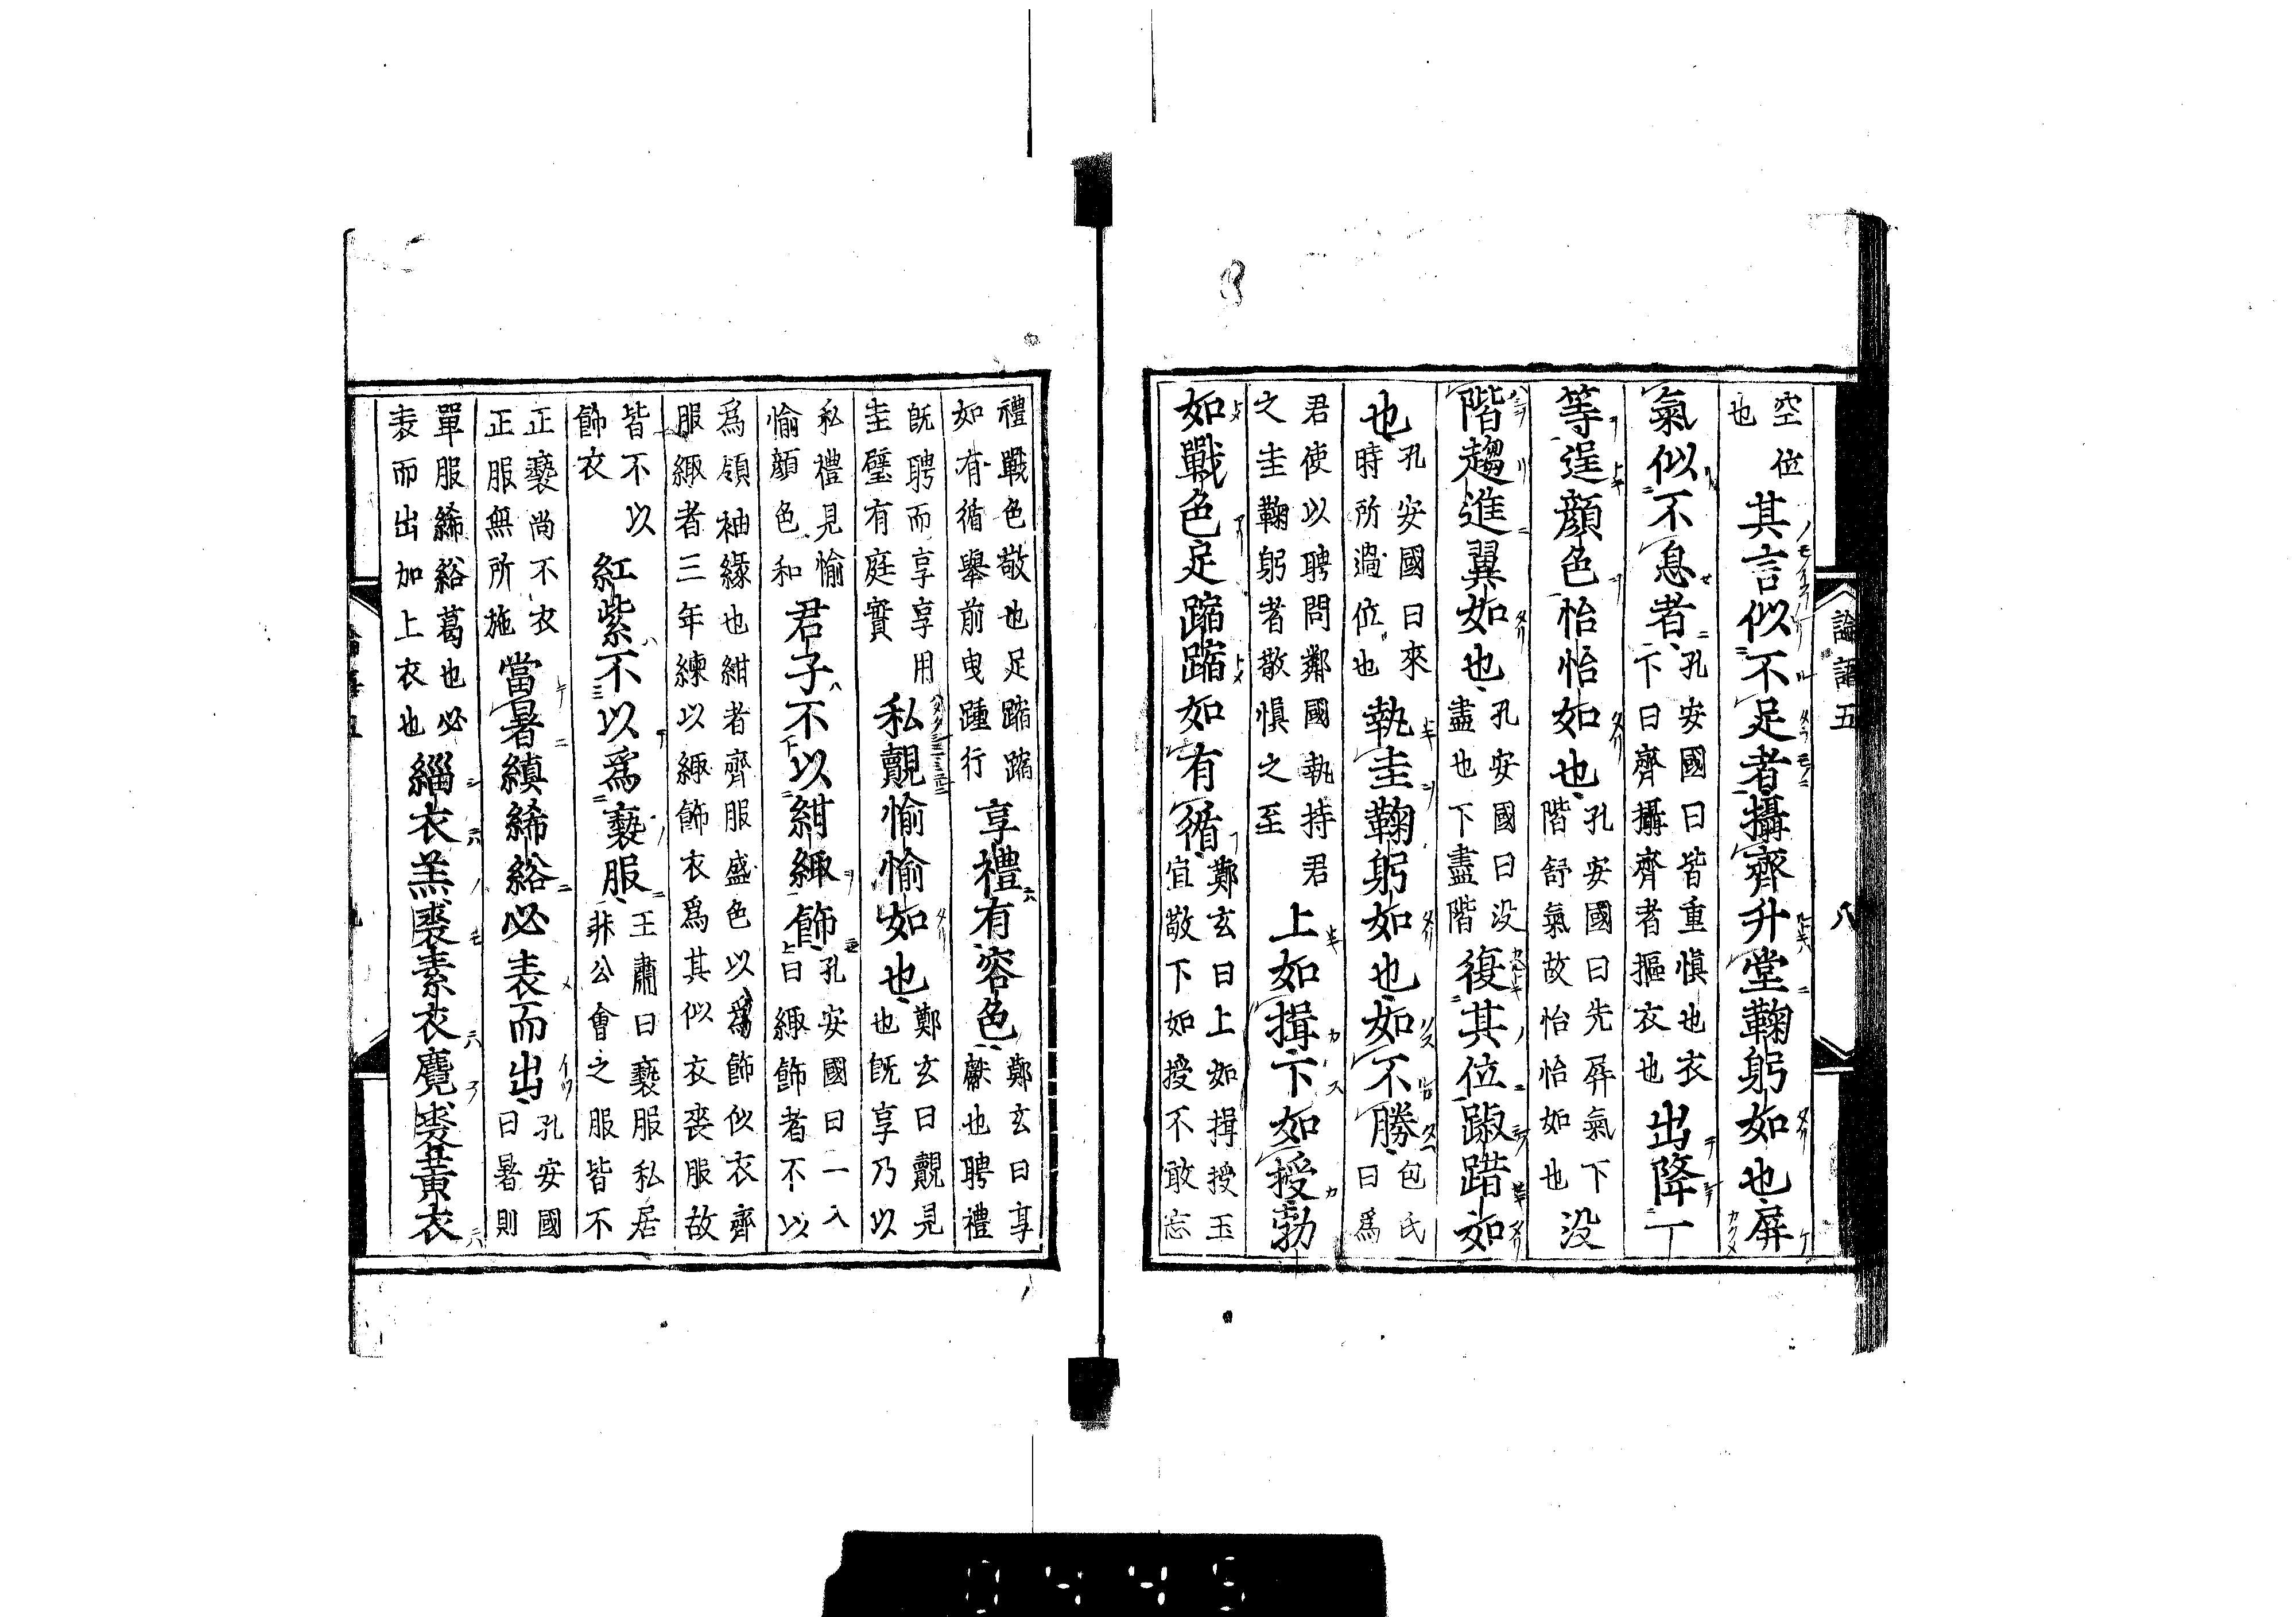 論語五 八
空位也其言似不足者攝齊升堂鞠躬如也屏
氣似不息者孔安國曰皆重慎也衣下曰齊攝齊者摳衣也出降一
等逞顏色怡怡如也孔安國曰先屏氣下階舒氣故怡怡如也沒
階趨進翼如也孔安國曰沒盡也下盡階復其位踧踖如
也孔安國曰來時所過位也執圭鞠躬如也如不勝包氏曰爲
君使以聘問鄰國執持君之圭鞠躬者敬慎之至上如揖下如授勃
如戰色足蹜蹜如有循鄭玄曰上如揖授玉宜敬下如授不敢忘
禮戰色敬也足蹜蹜如有循舉前曳踵行享禮有容色鄭玄曰享獻也聘禮
既聘而享享用圭璧有庭實私覿愉愉如也鄭玄曰覿見也既享乃以
私禮見愉愉顏色和君子不以紺緅飾孔安國曰一入曰緅飾者不以
爲領袖緣也紺者齊服盛色以爲飾似衣齊服緅者三年練以緅飾衣爲其似衣喪服故
皆不以飾衣紅紫不以爲褻服王肅曰褻服私居非公會之服皆不
正褻尚不衣正服無所施當暑縝絺綌必表而出孔安國曰暑則
單服絺綌葛也必表而出加上衣也緇衣羔裘素衣麑裘黃衣
0445